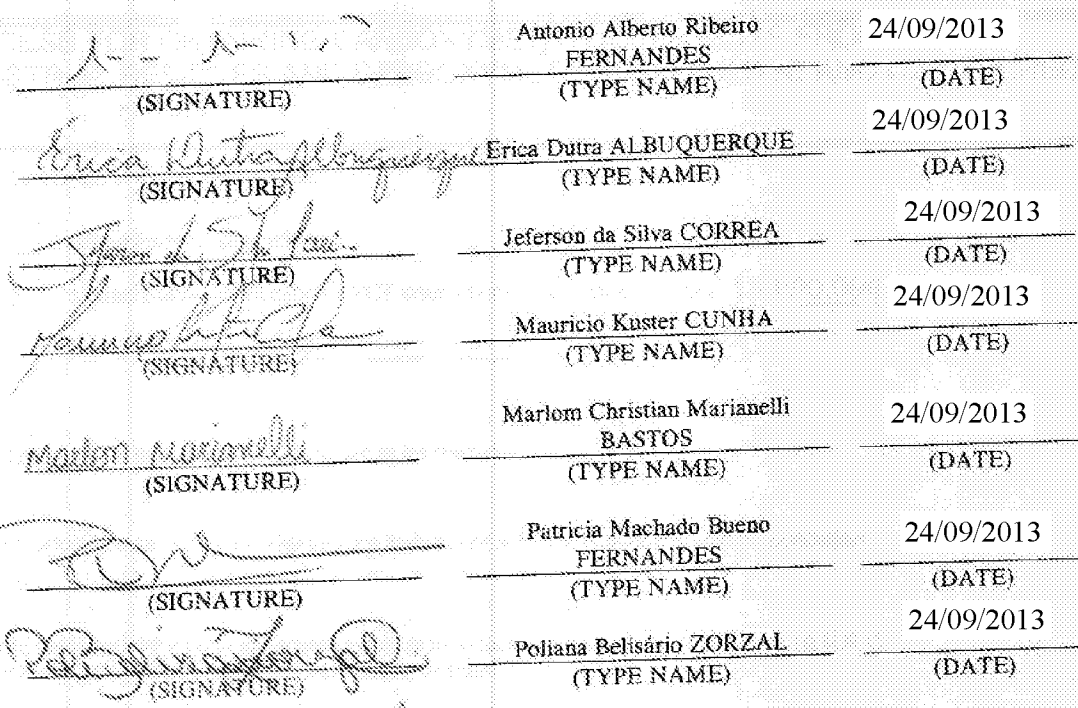 Antonio Alberto Ribeiro 24/09/2013
FERNANDES
(SIGNATURE) (TYPE NAME) (DATE)
Erica Dutra Albuquerque Erica Dutra ALBUQUERQUE 24/09/2013
(SIGNATURE) (TYPE NAME) (DATE)
Jeferson da Silva CORREA 24/09/2013
(SIGNATURE) (TYPE NAME) (DATE)
Mauricio Kuster CUNHA 24/09/2013
(SIGNATURE) (TYPE NAME) (DATE)
Marlom Christian Marianelli 24/09/2013
Marlom Marianelli BASTOS
(SIGNATURE) (TYPE NAME) (DATE)
Patricia Machado Bueno 24/09/2013
FERNANDES
(SIGNATURE) (TYPE NAME) (DATE)
Poliana Belisário ZORZAL 24/09/2013
(SIGNATURE) (TYPE NAME) (DATE)